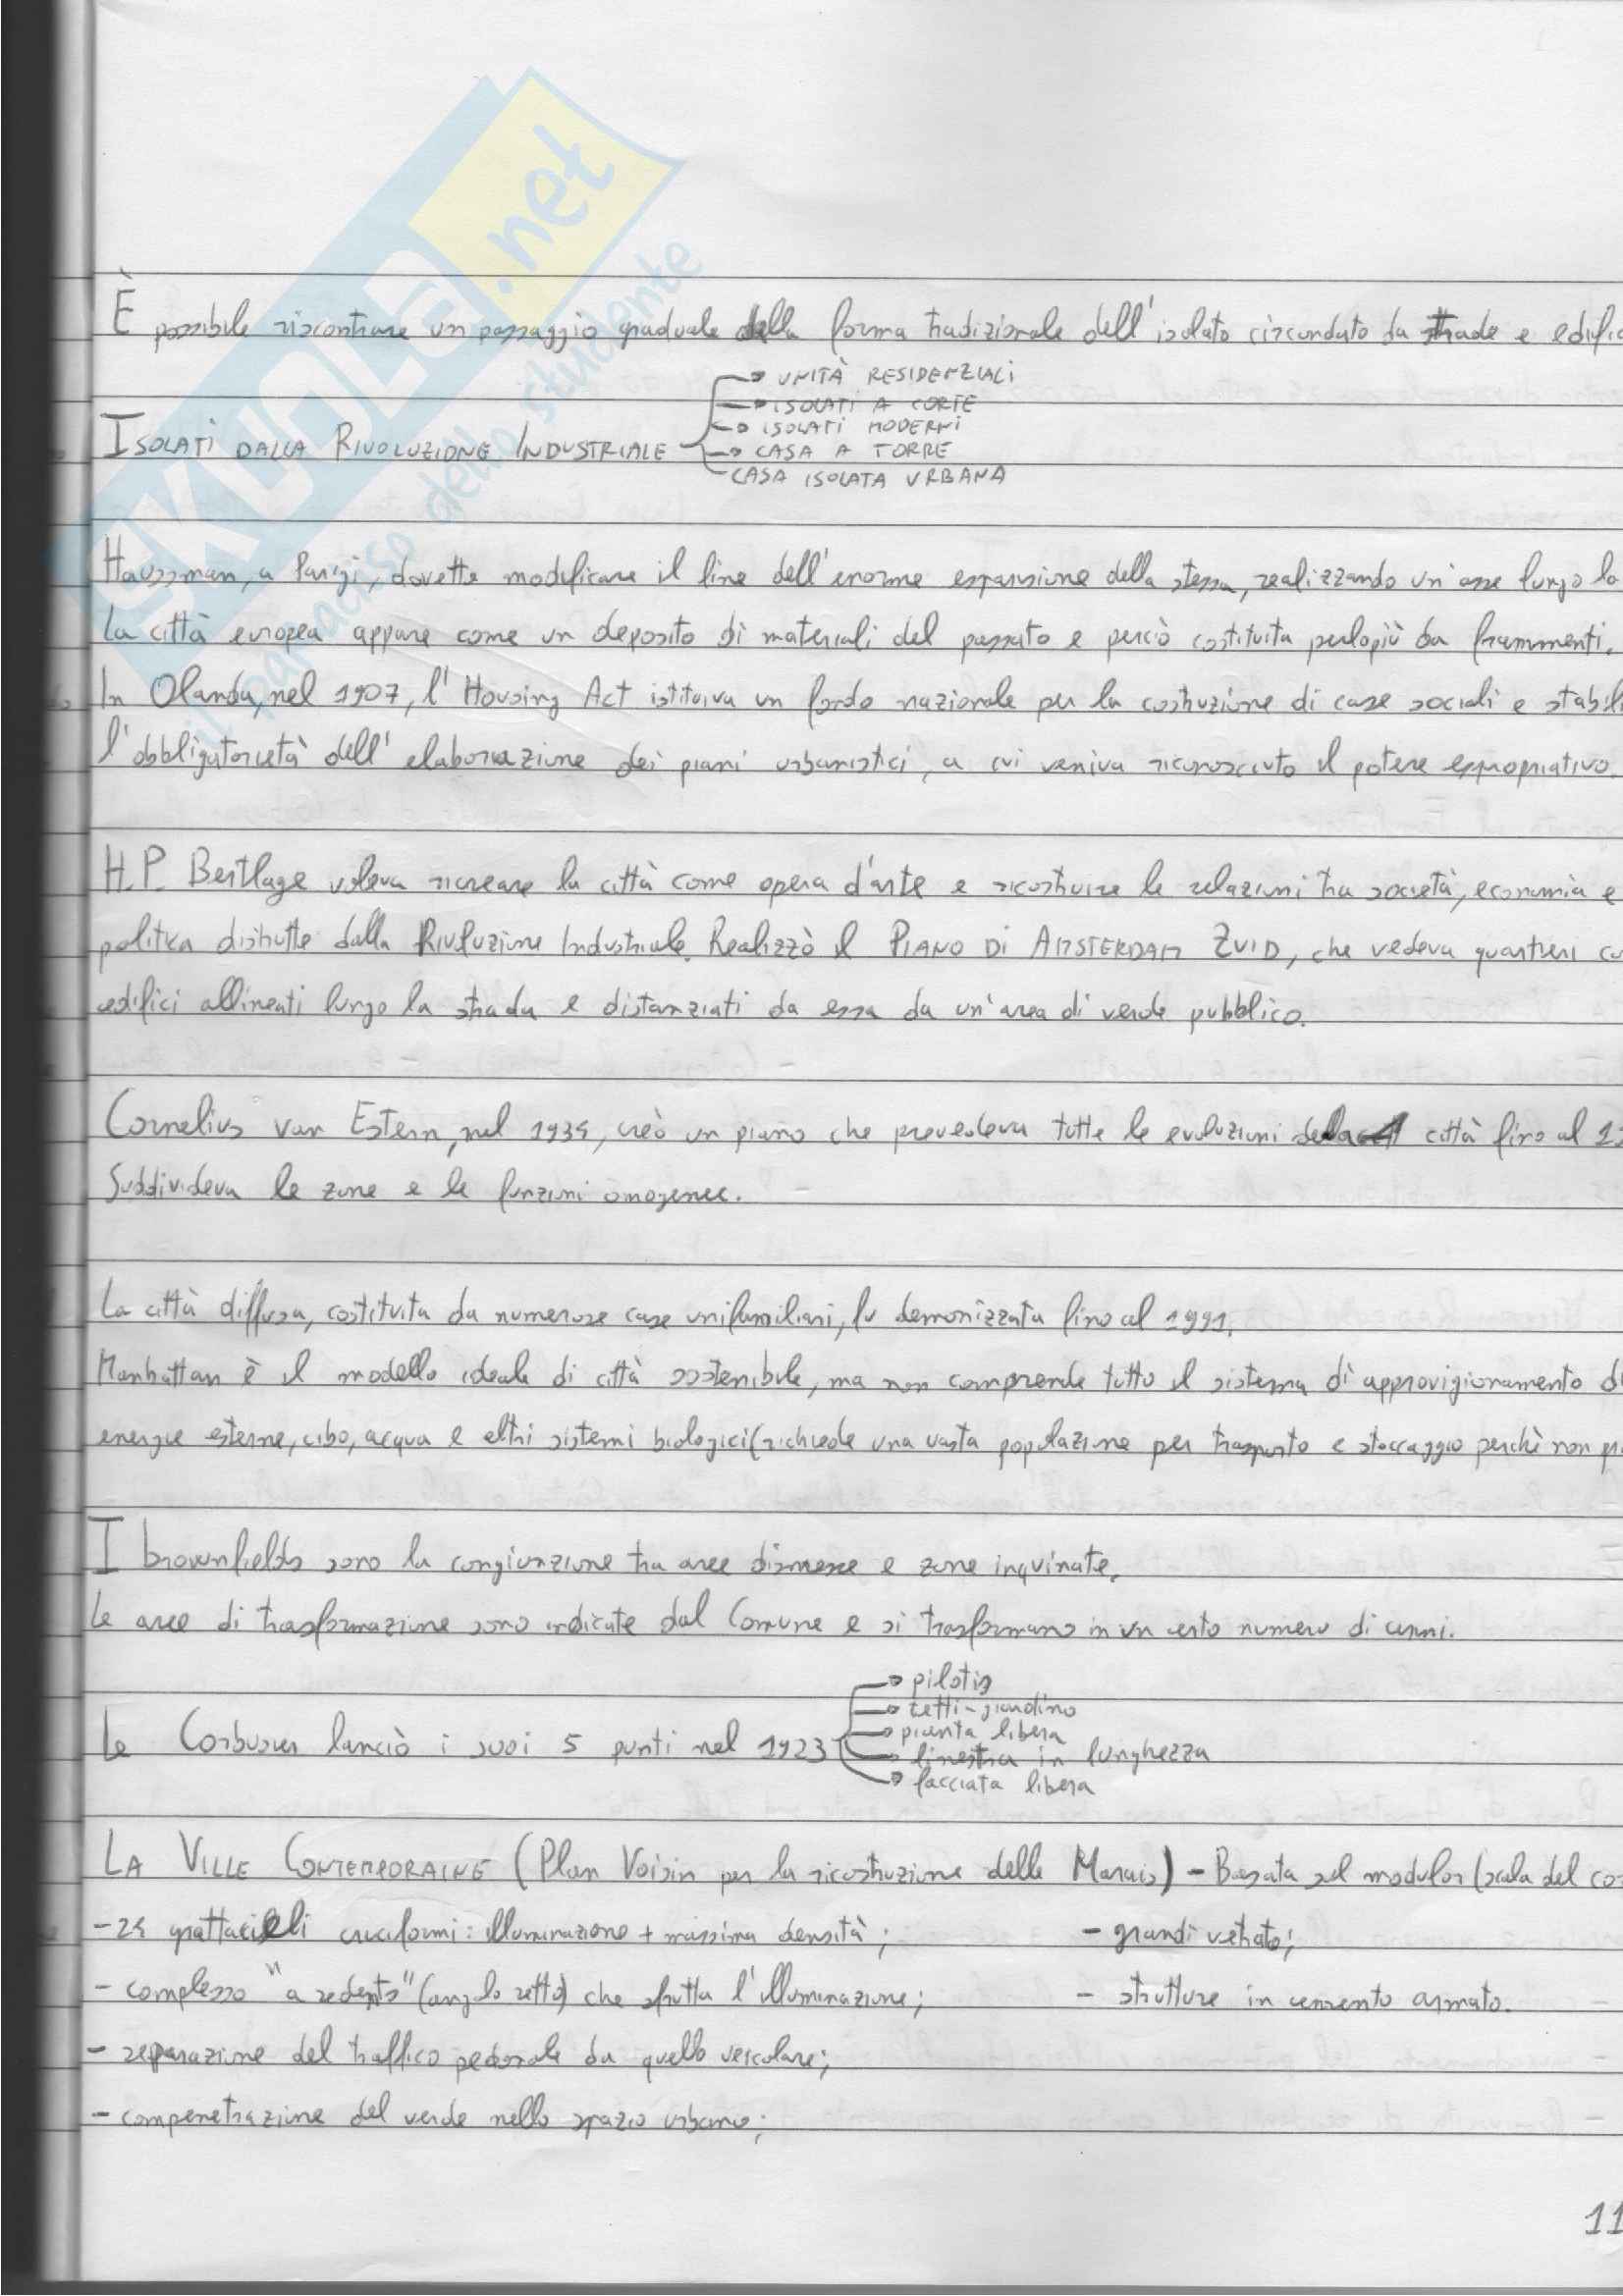 È possibile riscontrare un passaggio graduale della forma tradizionale dell'isolato circondato da strade e edific
ISOLATI DALLA RIVOLUZIONE INDUSTRIALE
UNITÀ RESIDENZIALI
ISOLATI A CORTE
ISOLATI MODERNI
CASA A TORRE
CASA ISOLATA URBANA
Haussman, a Parigi, dovette modificare il fine dell'enorme espansione della stessa, realizzando un'asse lungo la
La città europea appare come un deposito di materiali del passato e perciò costituita perlopiù da frammenti.
In Olanda, nel 1907, l'Housing Act istituiva un fondo nazionale per la costruzione di case sociali e stabili
l'obbligatorietà dell'elaborazione dei piani urbanistici, a cui veniva riconosciuto il potere espropriativo.
H.P. Berlage voleva ricreare la città come opera d'arte e ricostruire le relazioni tra società, economia e
politica distrutte dalla Rivoluzione Industriale. Realizzò il PIANO DI AMSTERDAM ZUID, che vedeva quartieri co
edifici allineati lungo la strada e distanziati da essa da un'area di verde pubblico.
Cornelius van Estern, nel 1934, creò un piano che prevedeva tutte le evoluzioni della città fino al
Suddivideva le zone e le funzioni omogenee.
La città diffusa, costituita da numerose case unifamiliari, fu demonizzata fino al 1991.
Manhattan è il modello ideale di città sostenibile, ma non comprende tutto il sistema di approvigionamento di
energie esterne, cibo, acqua e altri sistemi biologici (richiede una vasta popolazione per trasporto e stoccaggio perchè non
I brownfields sono la congiunzione tra aree dismesse e zone inquinate.
Le aree di trasformazione sono indicate dal Comune e si trasformano in un certo numero di anni.
Le Corbusier lanciò i suoi 5 punti nel 1923
pilotis
tetti-giardino
pianta libera
finestra in lunghezza
facciata libera
LA VILLE CONTEMPORAINE (Plan Voisin per la ricostruzione delle Marais) - Basata sul modulor (scala del co
- 24 grattacieli cruciformi: illuminazione + massima densità; - grandi vetrate;
- complesso "a redents" (angolo retto) che sfrutta l'illuminazione; - strutture in cemento armato.
- separazione del traffico pedonale da quello veicolare;
- compenetrazione del verde nello spazio urbano;
11
SKUOLA.net
il paradiso dello studente